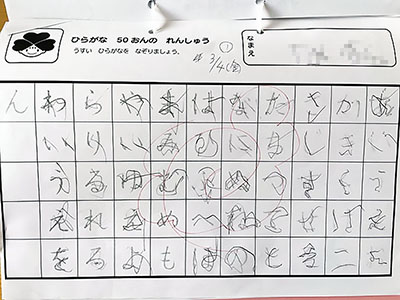 ひらがな 50おんの れんしゅう
うすい ひらがなを なぞりましょう。
①
3/4(金)
なまえ
あいうえお
かきくけこ
さしすせそ
たちつてと
なにぬねの
はひふへほ
まみむめも
やいゆえよ
らりるれろ
わいうえを
ん